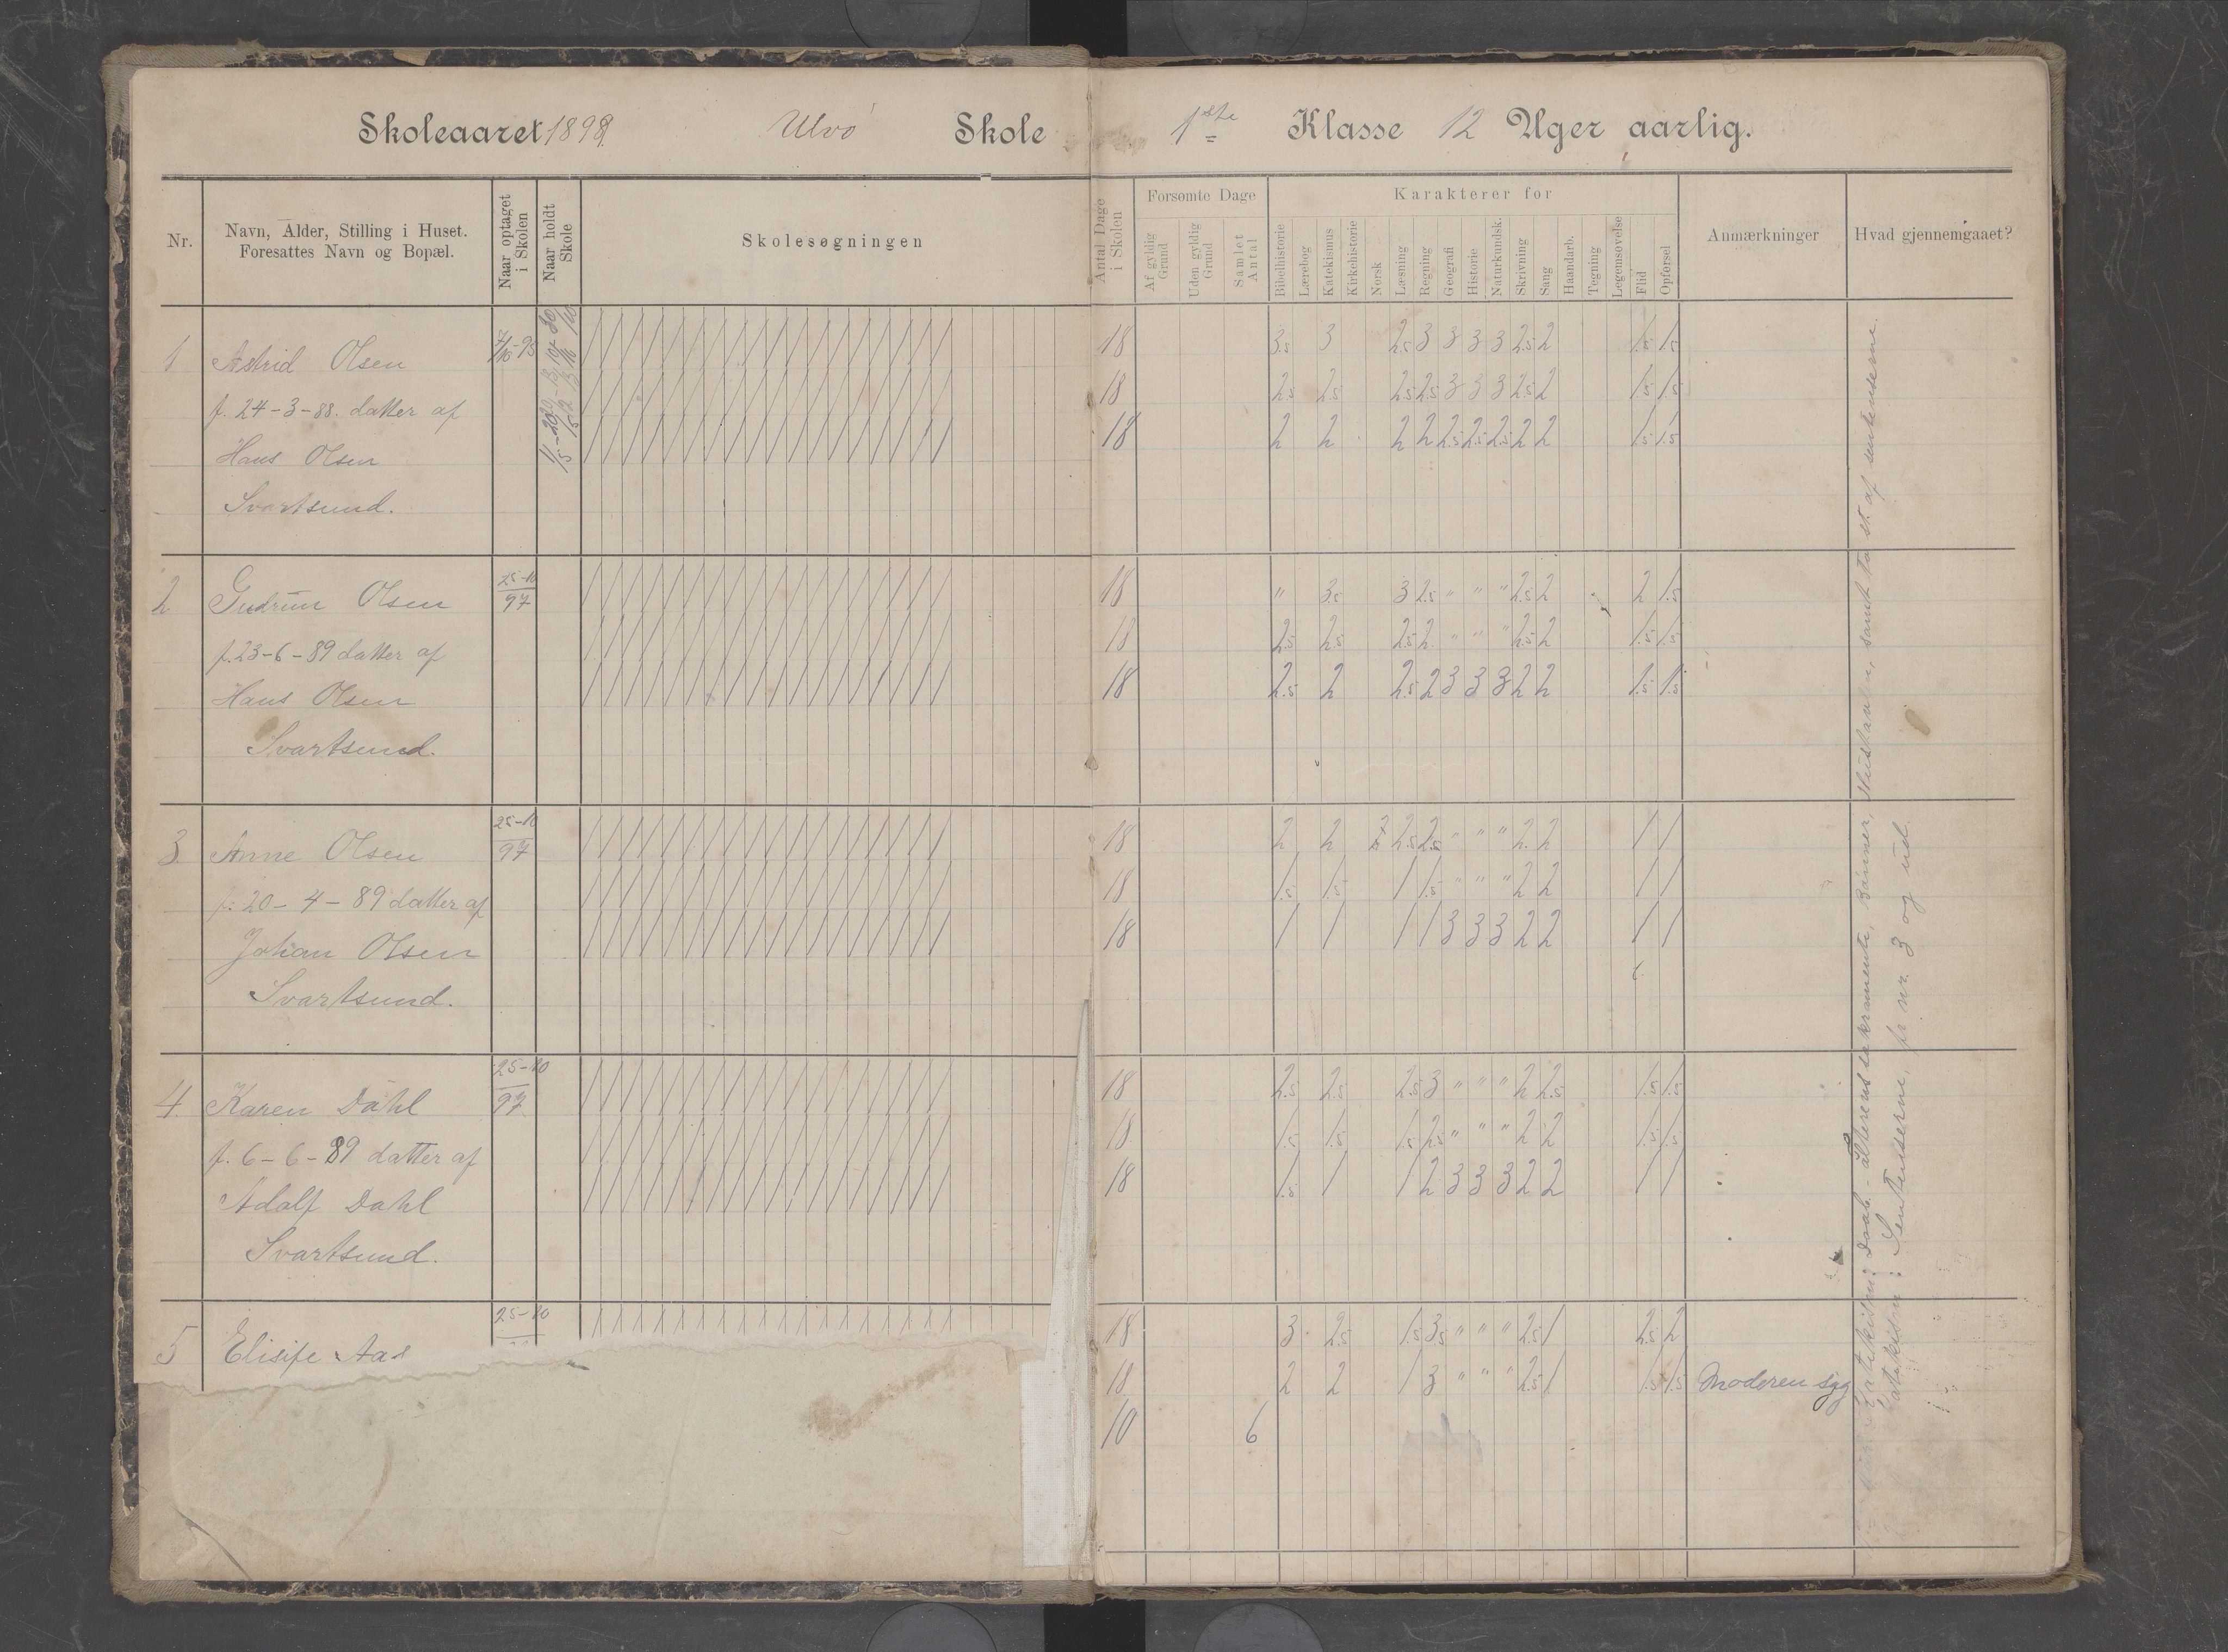 Skoleaaret 1898 Ulvö Skole 1ste Klasse 12 Uger aarlig.
Nr.
Navn, Alder, Stilling i Huset.
Foresattes Navn og Bopæl.
Naar optaget
i Skolen
Naar holdt
Skole
Skolesøgningen
Antal Dage
i Skolen
Forsømte Dage
Af gyldig
Grund
Uden gyldig
Grund
Samlet
Antal
Karakterer for
Bibelhistorie
Lærebog
Katekismus
Kirkehistorie
Norsk
Læsning
Regning
Geografi
Historie
Naturkundsk.
Skrivning
Sang
Haandarb.
Tegning
Legemsøvelse
Flid
Opførsel
Anmærkninger
Hvad gjennemgaaet?
1 Astrid Olsen
f. 24-3-88. datter af
Hans Olsen
Svartsund.
18 3.5 3 2.5 3 3 3 3 2.5 2 1.5 1.5
18 2.5 2.5 2.5 2.5 3 3 3 2.5 2 1.5 1.5
18 2 2 2 2 2.5 2.5 2.5 2 2 1.5 1.5
2 Gudrun Olsen 25-10 97
f. 23-6-89 datter af
Hans Olsen
Svartsund.
18 " 3.5 3 2.5 " " " 2.5 2 2 1.5
18 2.5 2.5 2.5 2 " " " 2.5 2 1.5 1.5
18 2.5 2 2.5 2 3 3 3 2 2 1.5 1.5
3 Anne Olsen 25-10 97
f. 20-4-89 datter af
Johan Olsen
Svartsund.
18 2 2 2.5 2.5 " " " 2 2 1 1
18 1.5 1.5 1 1.5 " " " 2 2 1 1
18 1 1 1 1 3 3 3 2 2 1 1
4 Karen Dahl 25-10 97
f. 6-6-89 datter af
Adolf Dahl
Svartsund.
18 2.5 2.5 2.5 3 " " " 2 2.5 1.5 1.5
18 1.5 1.5 1.5 2.5 " " " 2 2 1.5 1.5
18 1.5 1 1 2 3 3 3 2 2 1 1
5 Elisife Aas 25-10
18 3 2.5 1.5 3.5 " " " 2.5 1 2.5 2
18 2 2 1 3 " " " 2.5 1 1.5 1.5 Moderen syg
10 6
Daab - Alterens sakramente, Bønner, Hustavlen, samt to st. af sentenserne.
Sentenserne, fr. nr. 3 og ud.